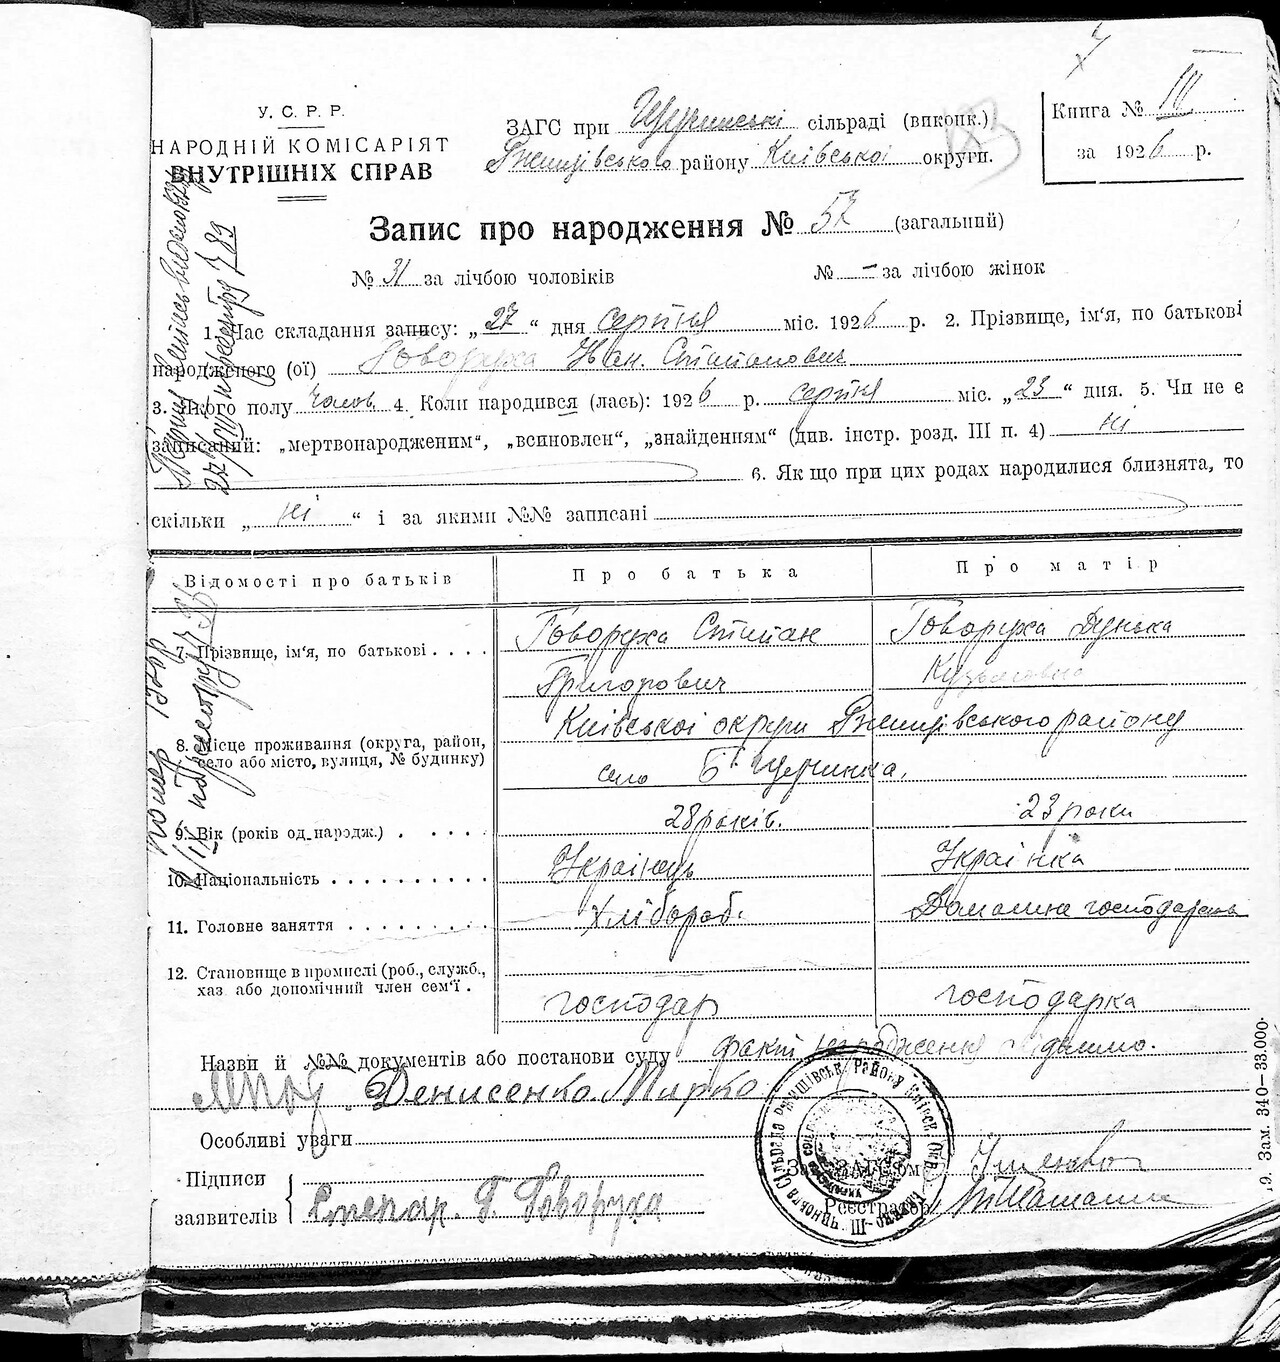 У. С. Р. Р.
НАРОДНІЙ КОМІСАРІЯТ
ВНУТРІШНІХ СПРАВ
ЗАГС при сільраді (виконк.)
Ржищівського району Київської округи.
Книга № III
за 1926 р.
183
Запис про народження № 57 (загальний)
№ 31 за лічбою чоловіків № – за лічбою жінок
1. Час складання запису: „27“ дня серпня міс. 1926 р. 2. Прізвище, ім'я, по батькові
народженого (ої) Говоруха Іван Стипанович
3. Якого полу чолов. 4. Коли народився (лась): 1926 р. серпня міс. „23“ дня. 5. Чи не є
записаний: „мертвонародженим“, „всиновлен“, „знайденням“ (див. інстр. розд. III п. 4) ні
6. Як що при цих родах народилися близнята, то
скільки „ні“ і за якими №№ записані
Відомості про батьків Про батька Про матір
7. Прізвище, ім'я, по батькові . . . . Говоруха Стипан Говоруха Дунька
Григорович Кузьмовна
8. Місце проживання (округа, район, село або місто, вулиця, № будинку) Київської округи Ржищівського району
село
9. Вік (років од народж.) . . . . . 28 років. 23 роки
10. Національність . . . . . . . . . . Українець Українка
11. Головне заняття . . . . . . . . . Хлібороб. господарства
12. Становище в промислі (роб., служб.,
хаз. або допомічний член сем'ї . господар господарка
Назви й №№ документів або постанови суду факт народження
Денисенко Мирко
Особливі уваги
Підписи
заявителів Степан. Г. Говоруха
Зав. ЗАГС'ом
Реєстратор
19. Зам. 340—33.000.